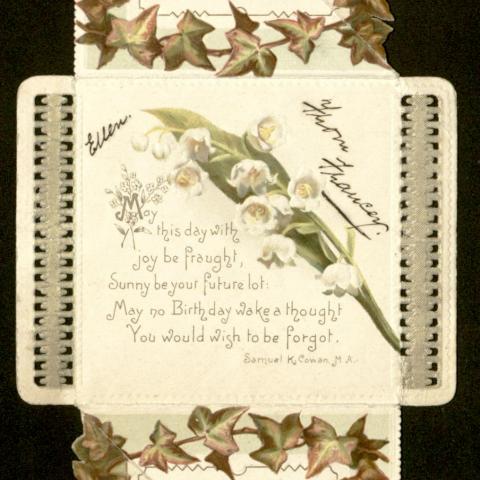 Ellen.
From Frances.
May
this day with
joy be fraught,
Sunny be your future lot:
May no Birthday wake a thought
You would wish to be forgot.
Samuel K. Cowan, M.A.